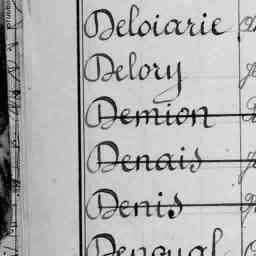 Deloiarie
Delory
Demion
Denais
Denis
Denoual